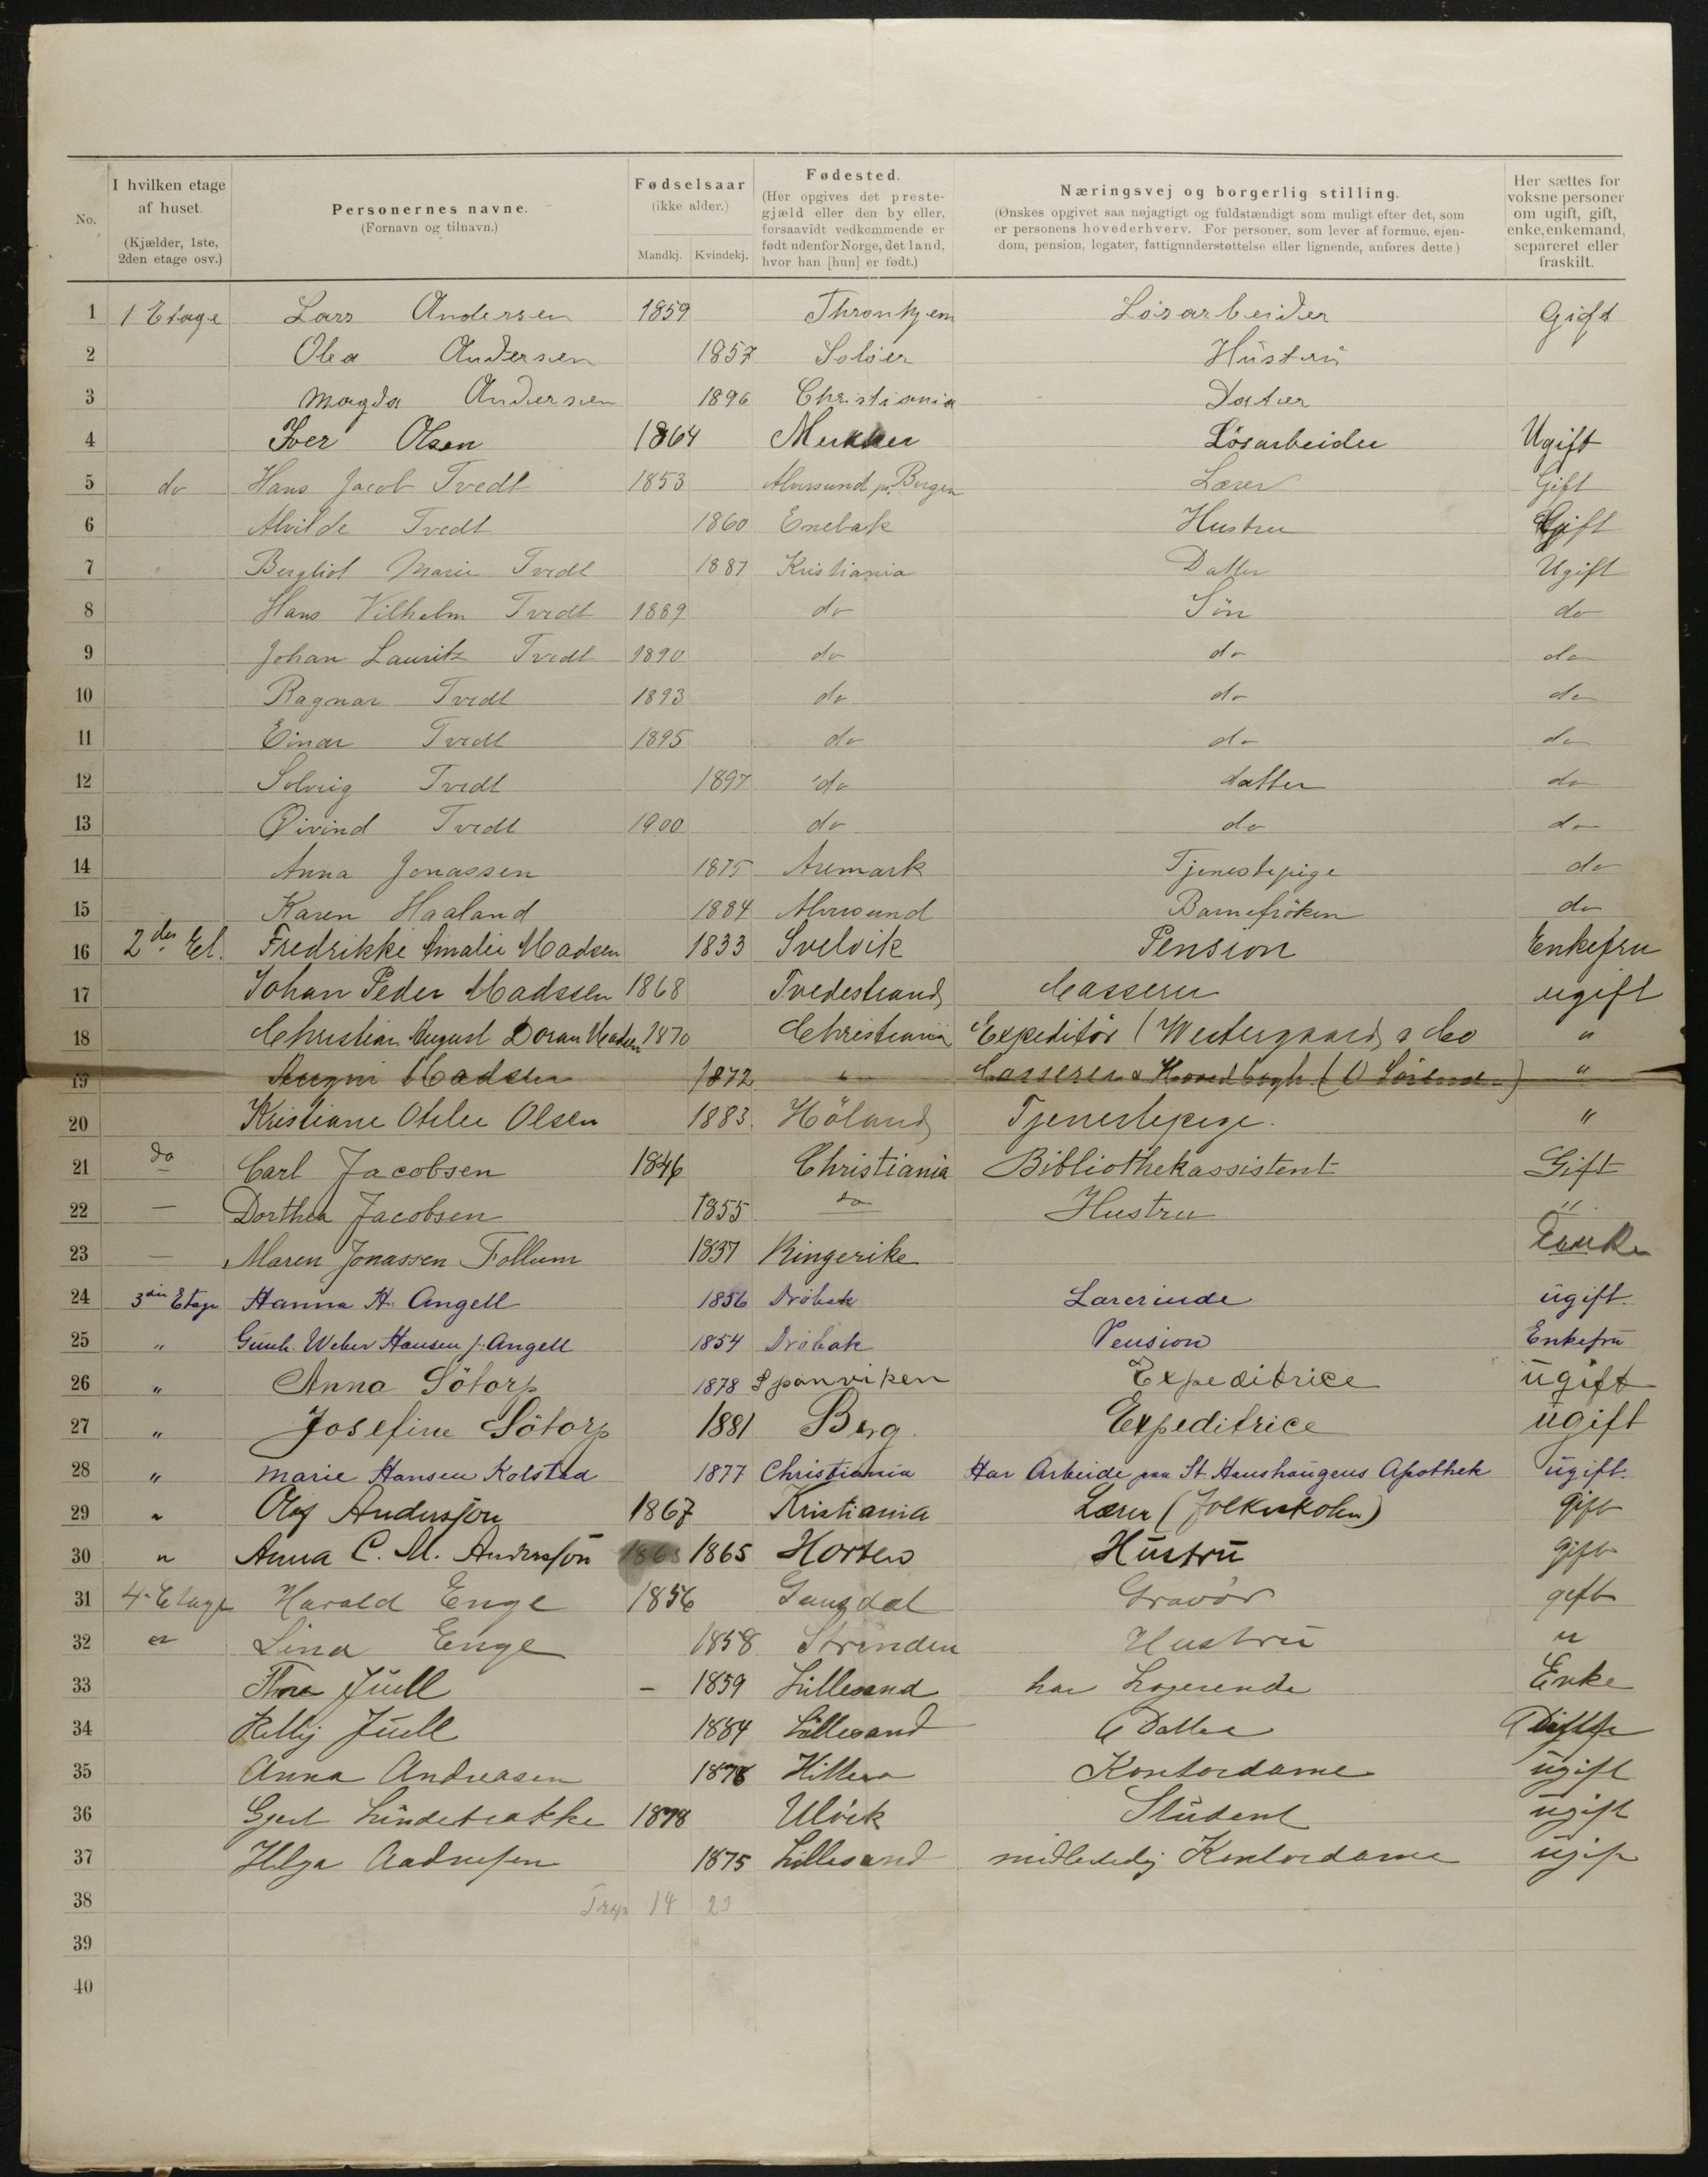 No.
I hvilken etage af huset.
(Kjælder, 1ste, 2den etage osv.)
Personernes navne.
(Fornavn og tilnavn.)
Fødselsaar
(ikke alder.)
Mandkj. Kvindekj.
Fødested.
(Her opgives det prestegjæld eller den by eller, forsaavidt vedkommende er født udenfor Norge, det land, hvor han [hun] er født.)
Næringsvej og borgerlig stilling.
(Ønskes opgivet saa nøjagtigt og fuldstændigt som muligt efter det, som er personens hovederhverv. For personer, som lever af formue, ejendom, pension, legater, fattigunderstøttelse eller lignende, anføres dette.)
Her sættes for voksne personer om ugift, gift, enke, enkemand, separeret eller fraskilt.
1 1 Etage Lars Andersen 1859 Thronhjem Lösarbeider Gift
2 Olea Andersen 1857 Solöer Hüstrü
3 Magda Andersen 1896 Christiania Dater
4 Iver Olsen 1864 Lösarbeider Ugift
5 do Hans Jacob Tvedt 1853 Alversund pr. Bergen Lærer Gift
6 Alvilde Tvedt 1860 Enebak Hustru Gift
7 Bergliot Marie Tvedt 1887 Kristiania Datter Ugift
8 Hans Vilhelm Tvedt 1889 do Sön do
9 Johan Lauritz Tvedt 1890 do do do
10 Ragnar Tvedt 1893 do do do
11 Einar Tvedt 1895 do do do
12 Solveig Tvedt 1897 do datter do
13 Øivind Tvedt 1900 do do do
14 Anna Jonassen 1875 Aremark Tjenestepige do
15 Karen Haaland 1884 Alversund Barnefröken do
16 2den Et. Fredrikke Amalie Madsen 1833 Svelvik Pension Enkefru
17 Johan Peder Madssen 1868 Tvedestrand Casserer ugift
18 Christian August Doran Madsen 1870 Christiania Expeditör (Westergaard & Co "
19 Madsen 1872 " Casserer & Hovedbogh. "
20 Kristiane Otelie Olsen 1883. Höland Tjenestepige. "
21 do Carl Jacobsen 1846 Christiania Bibliothekassistent Gift
22 — Dorthea Jacobsen 1855 do Hustru "
23 — Maren Jonassen Follum 1837 Ringerike Enke
24 3die Etage Hanna H. Angell 1856 Dröbak Lærerinde ügift.
25 " Gunh. Weber Hansen f. Angell 1854 Dröbak Pension Enkefrü
26 " Anna Sötorp 1878 Sponviken Expeditrice ügift
27 " Josefine Sötorp 1881 Berg. Expeditrice ügift
28 " Marie Hansen Kolstad 1877 Christiania Har Arbeide paa St. Hanshaugens Apothek ügift.
29 " Olaf Andersson 1867 Kristiania Lærer (Folkeskolen) gift
30 " Anna C. M. Andersson 1865 Horten Hüstrü gift
31 4 Etage Harald Enge 1856 Gausdal Gravör gift
32 " Lina Enge 1858 Strinden Hustrü "
33 Thora Jüell – 1859 Lillesand har Logerende Enke
34 Jüell 1884 Lillesand Datter
35 Anna Andreasen 1878 Hitterø Kontordame ügift
36 Gjert Lindebrække 1878 Ulvik Stüdent ügift
37 Helga Aadnesen 1875 Lillesand midlertidig Kontordame ügift
38 14 23
39
40